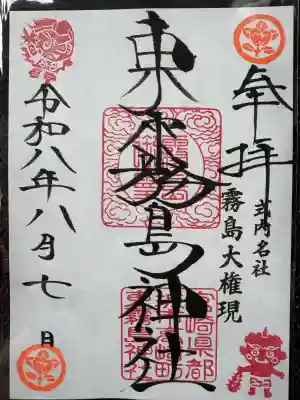 奉拝
式内名社
霧島大権現
東霧島神社
宮崎県都
東霧島神社
令和八年八月七日